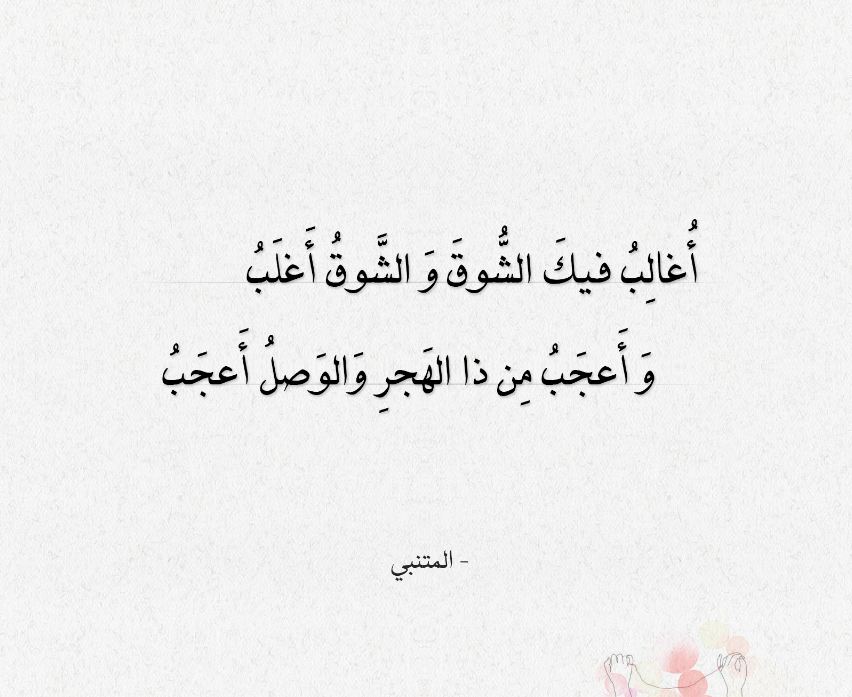 أُغالِبُ فيكَ الشُّوقَ وَ الشَّوقُ أَغلَبُ
وَ أَعجَبُ مِن ذا الهَجرِ وَالوَصلُ أَعجَبُ
- المتنبي